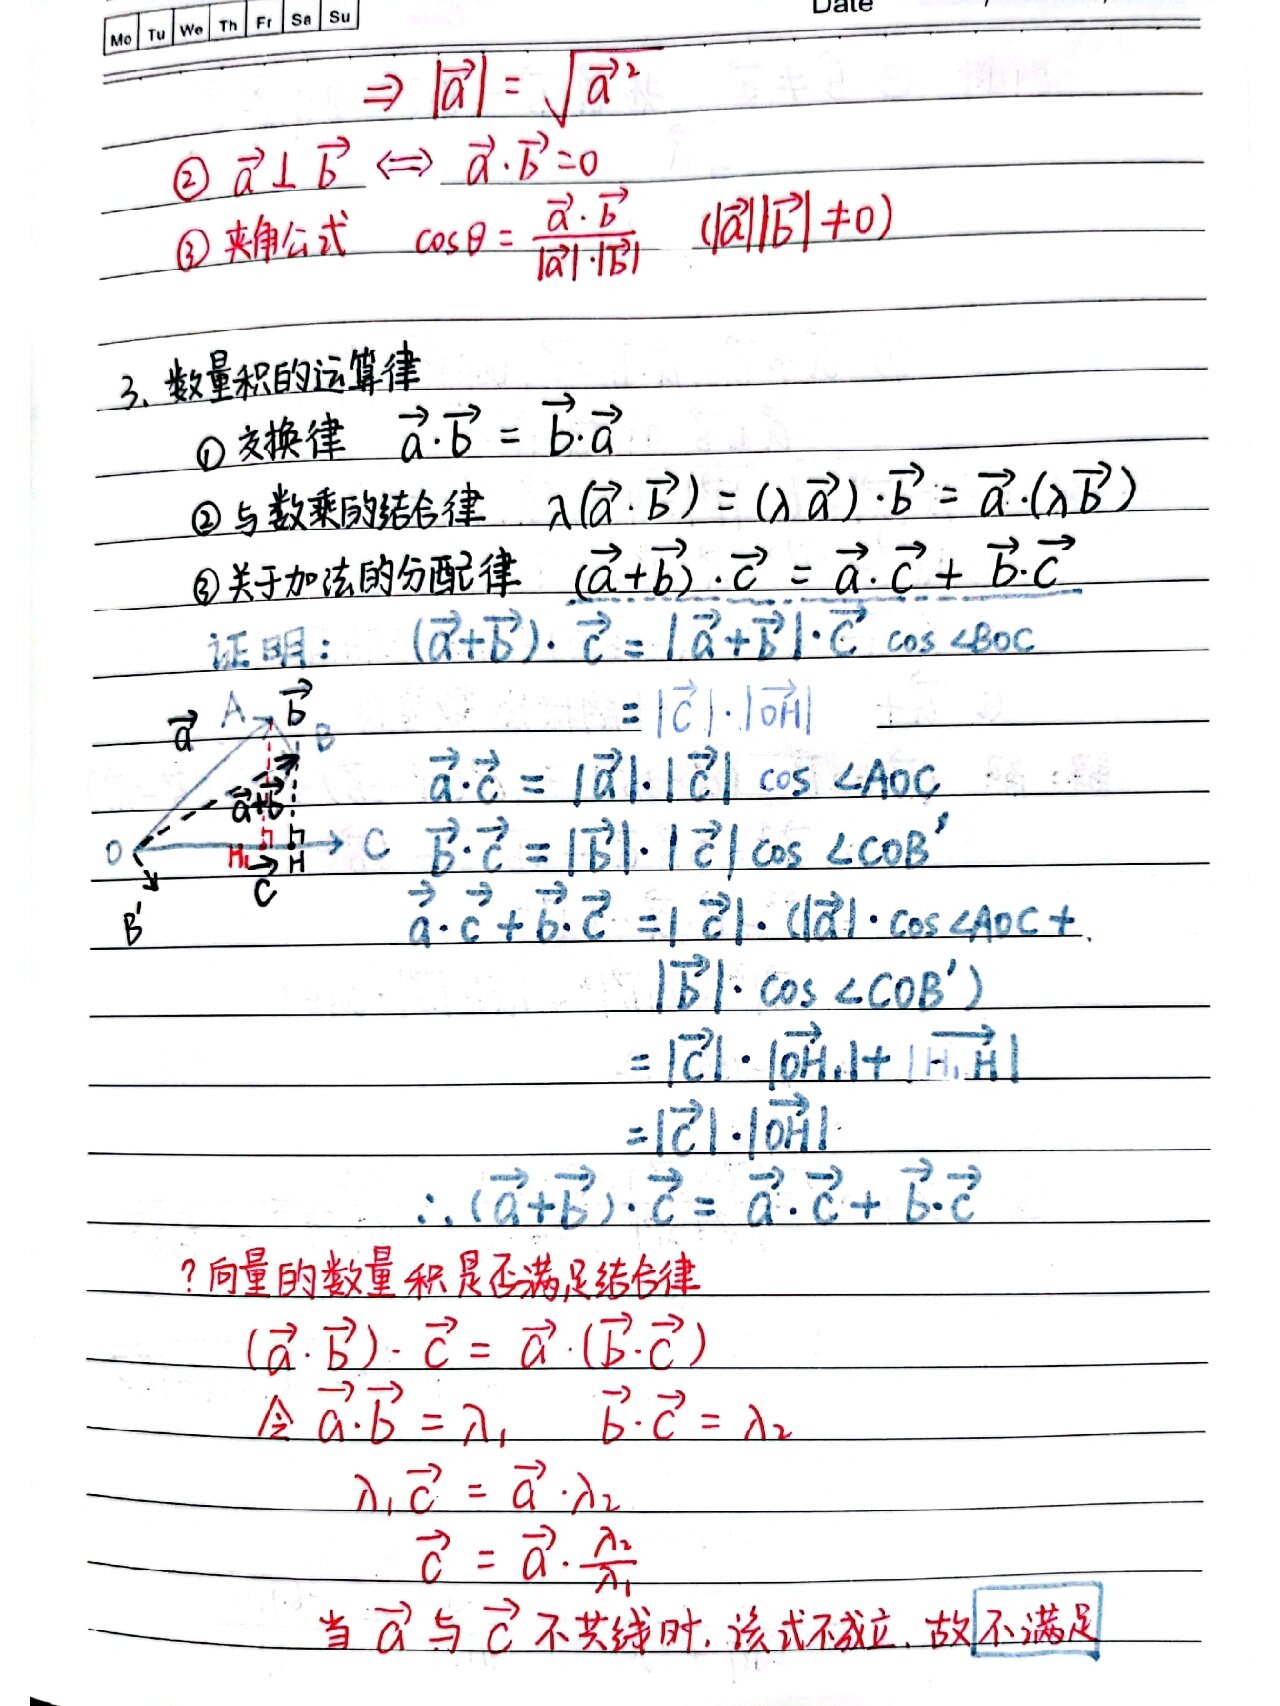 Mo Tu We Th Fr Sa Su
Date
⇒ |a⃗| = √a⃗²
② a⃗⊥b⃗ ⇔ a⃗·b⃗=0
③ 夹角公式 cosθ = a⃗·b⃗/|a⃗|·|b⃗| (|a⃗||b⃗|≠0)
3、数量积的运算律
① 交换律 a⃗·b⃗ = b⃗·a⃗
② 与数乘的结合律 λ(a⃗·b⃗) = (λa⃗)·b⃗ = a⃗·(λb⃗)
③ 关于加法的分配律 (a⃗+b⃗)·c⃗ = a⃗·c⃗ + b⃗·c⃗
证明: (a⃗+b⃗)·c⃗ = |a⃗+b⃗|·c⃗ cos∠BOC
= |c⃗|·|OH⃗|
a⃗ A b⃗ B
a⃗+b⃗
O H₁ H C
c⃗
B'
a⃗·c⃗ = |a⃗|·|c⃗| cos∠AOC
b⃗·c⃗ = |b⃗|·|c⃗| cos∠COB'
a⃗·c⃗ + b⃗·c⃗ = |c⃗|·(|a⃗|·cos∠AOC +
|b⃗|·cos∠COB')
= |c⃗|·|OH₁⃗| + |H₁H⃗|
= |c⃗|·|OH⃗|
∴(a⃗+b⃗)·c⃗ = a⃗·c⃗ + b⃗·c⃗
?向量的数量积是否满足结合律
(a⃗·b⃗)·c⃗ = a⃗·(b⃗·c⃗)
令 a⃗·b⃗ = λ₁ b⃗·c⃗ = λ₂
λ₁c⃗ = a⃗·λ₂
c⃗ = a⃗·λ₂/λ₁
当 a⃗ 与 c⃗ 不共线时,该式不成立,故不满足